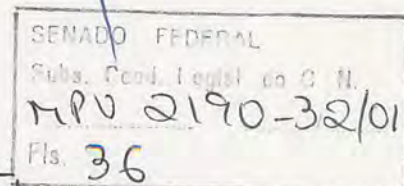 SENADO FEDERAL
Subs. Coord. Legisl. do C. N.
MPV 2190-32/01
Fls. 36